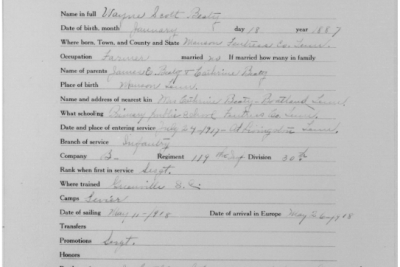 Name in full Wayne Scott Beaty
Date of birth, month January day 18 year 1887
Where born, Town, and County and State Monroe Fentress Co. Tenn.
Occupation Farmer married no If married how many in family
Name of parents James Beaty & Catherine Beaty
Place of birth Monroe Tenn.
Name and address of nearest kin Mrs Catherine Beaty Tenn
What schooling Primary public School Fentress Co. Tenn.
Date and place of entering service Livingston Tenn.
Branch of service Infantry
Company B- Regiment 119 Division 30th
Rank when first in service Sergt.
Where trained Greenville S.C.
Camps Sevier
Date of sailing May 11-1918 Date of arrival in Europe May 18
Transfers
Promotions Sergt.
Honors